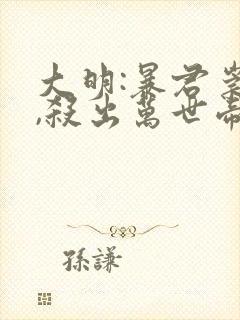 大明:暴君崇
,殺出萬世帝
孫謙